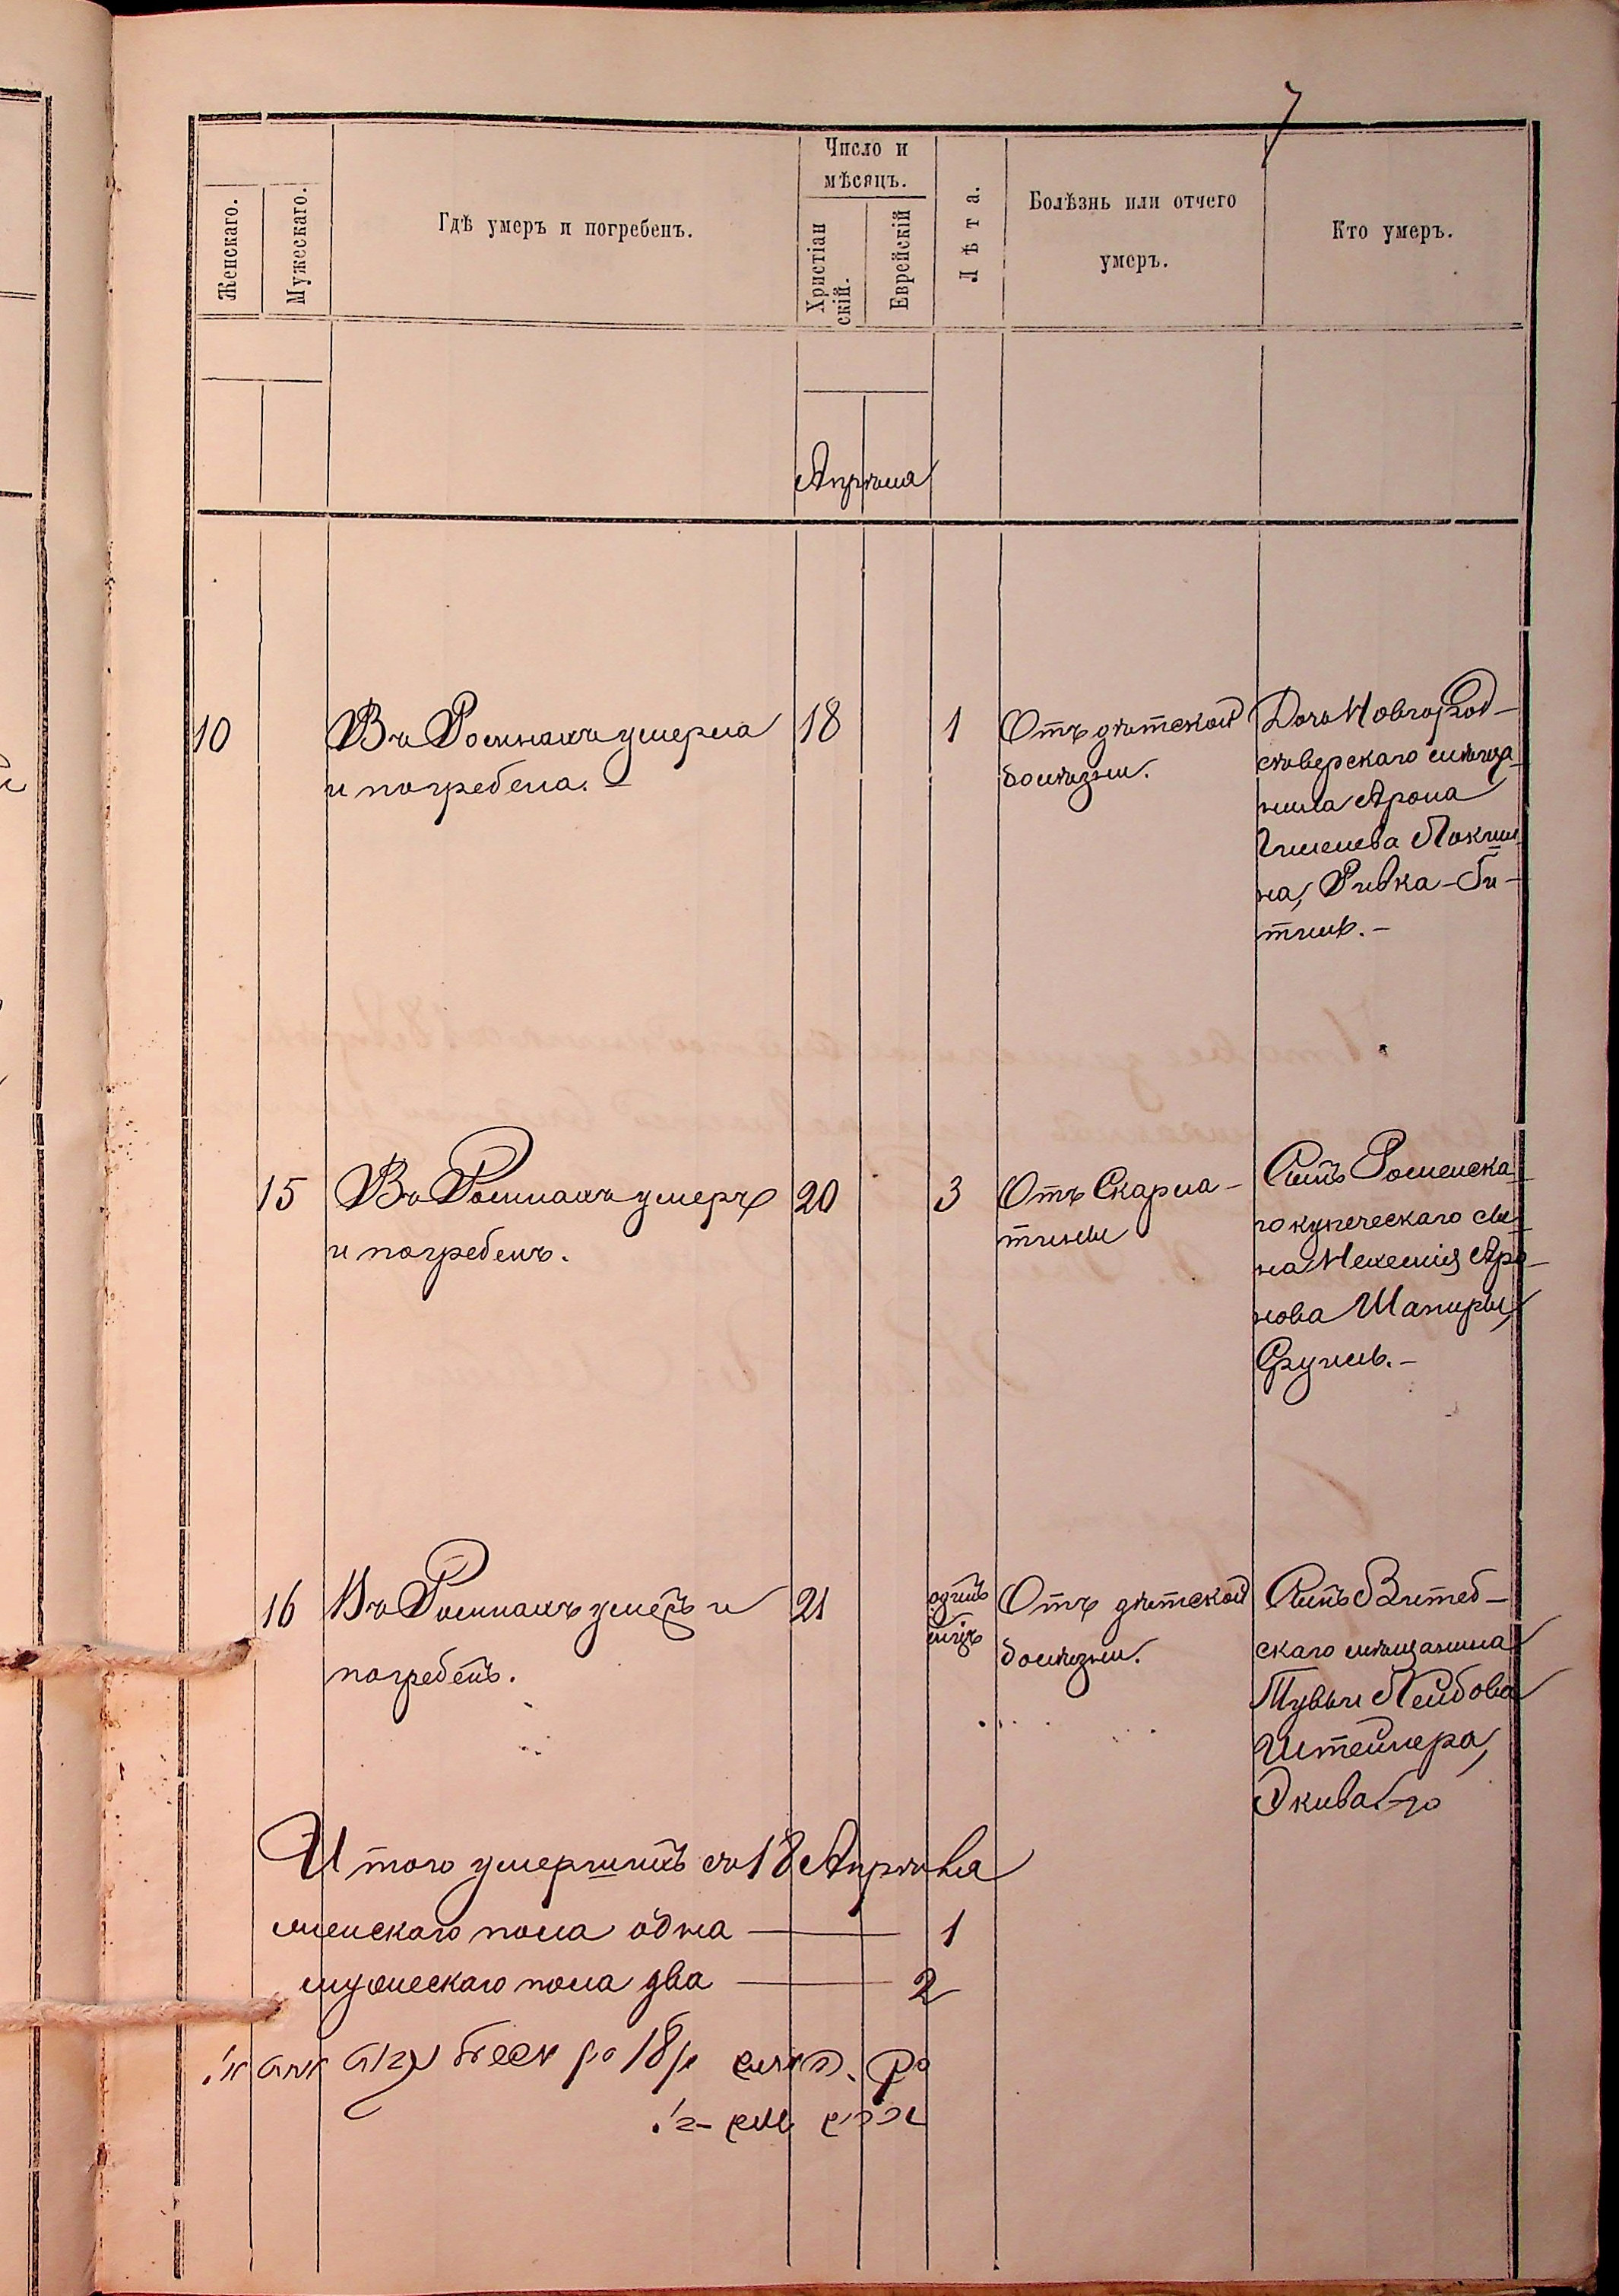 7
Женскаго.
Мужескаго.
Гдѣ умеръ и погребенъ.
Число и
мѣсяцъ.
Христіан
скій.
Еврейскій
Лѣта.
Болѣзнь или отчего
умеръ.
Кто умеръ.
Апрѣля
10
Въ Ромнахъ умерла
и погребена.
18
1
Отъ дѣтской
болѣзни.
Дочь Новгород-
сѣверскаго мѣща-
нина Арона
Локши-
на, Ривка-
15
Въ Ромнахъ умеръ
и погребенъ.
20
3
Отъ Скарла-
тины
Сынъ Роменска-
го купеческаго сы-
на Нехемія Аро-
нова Шапиры,
16
Въ Ромнахъ умеръ и
погребенъ.
21
одинъ
мѣс.
Отъ дѣтской
болѣзни.
Сынъ Витеб-
скаго мѣщанина
Тувьи Лейбова
Штейнера,
Экива
Итого умершихъ съ 18 Апрѣля
женскаго пола одна — 1
мужескаго пола два — 2
18